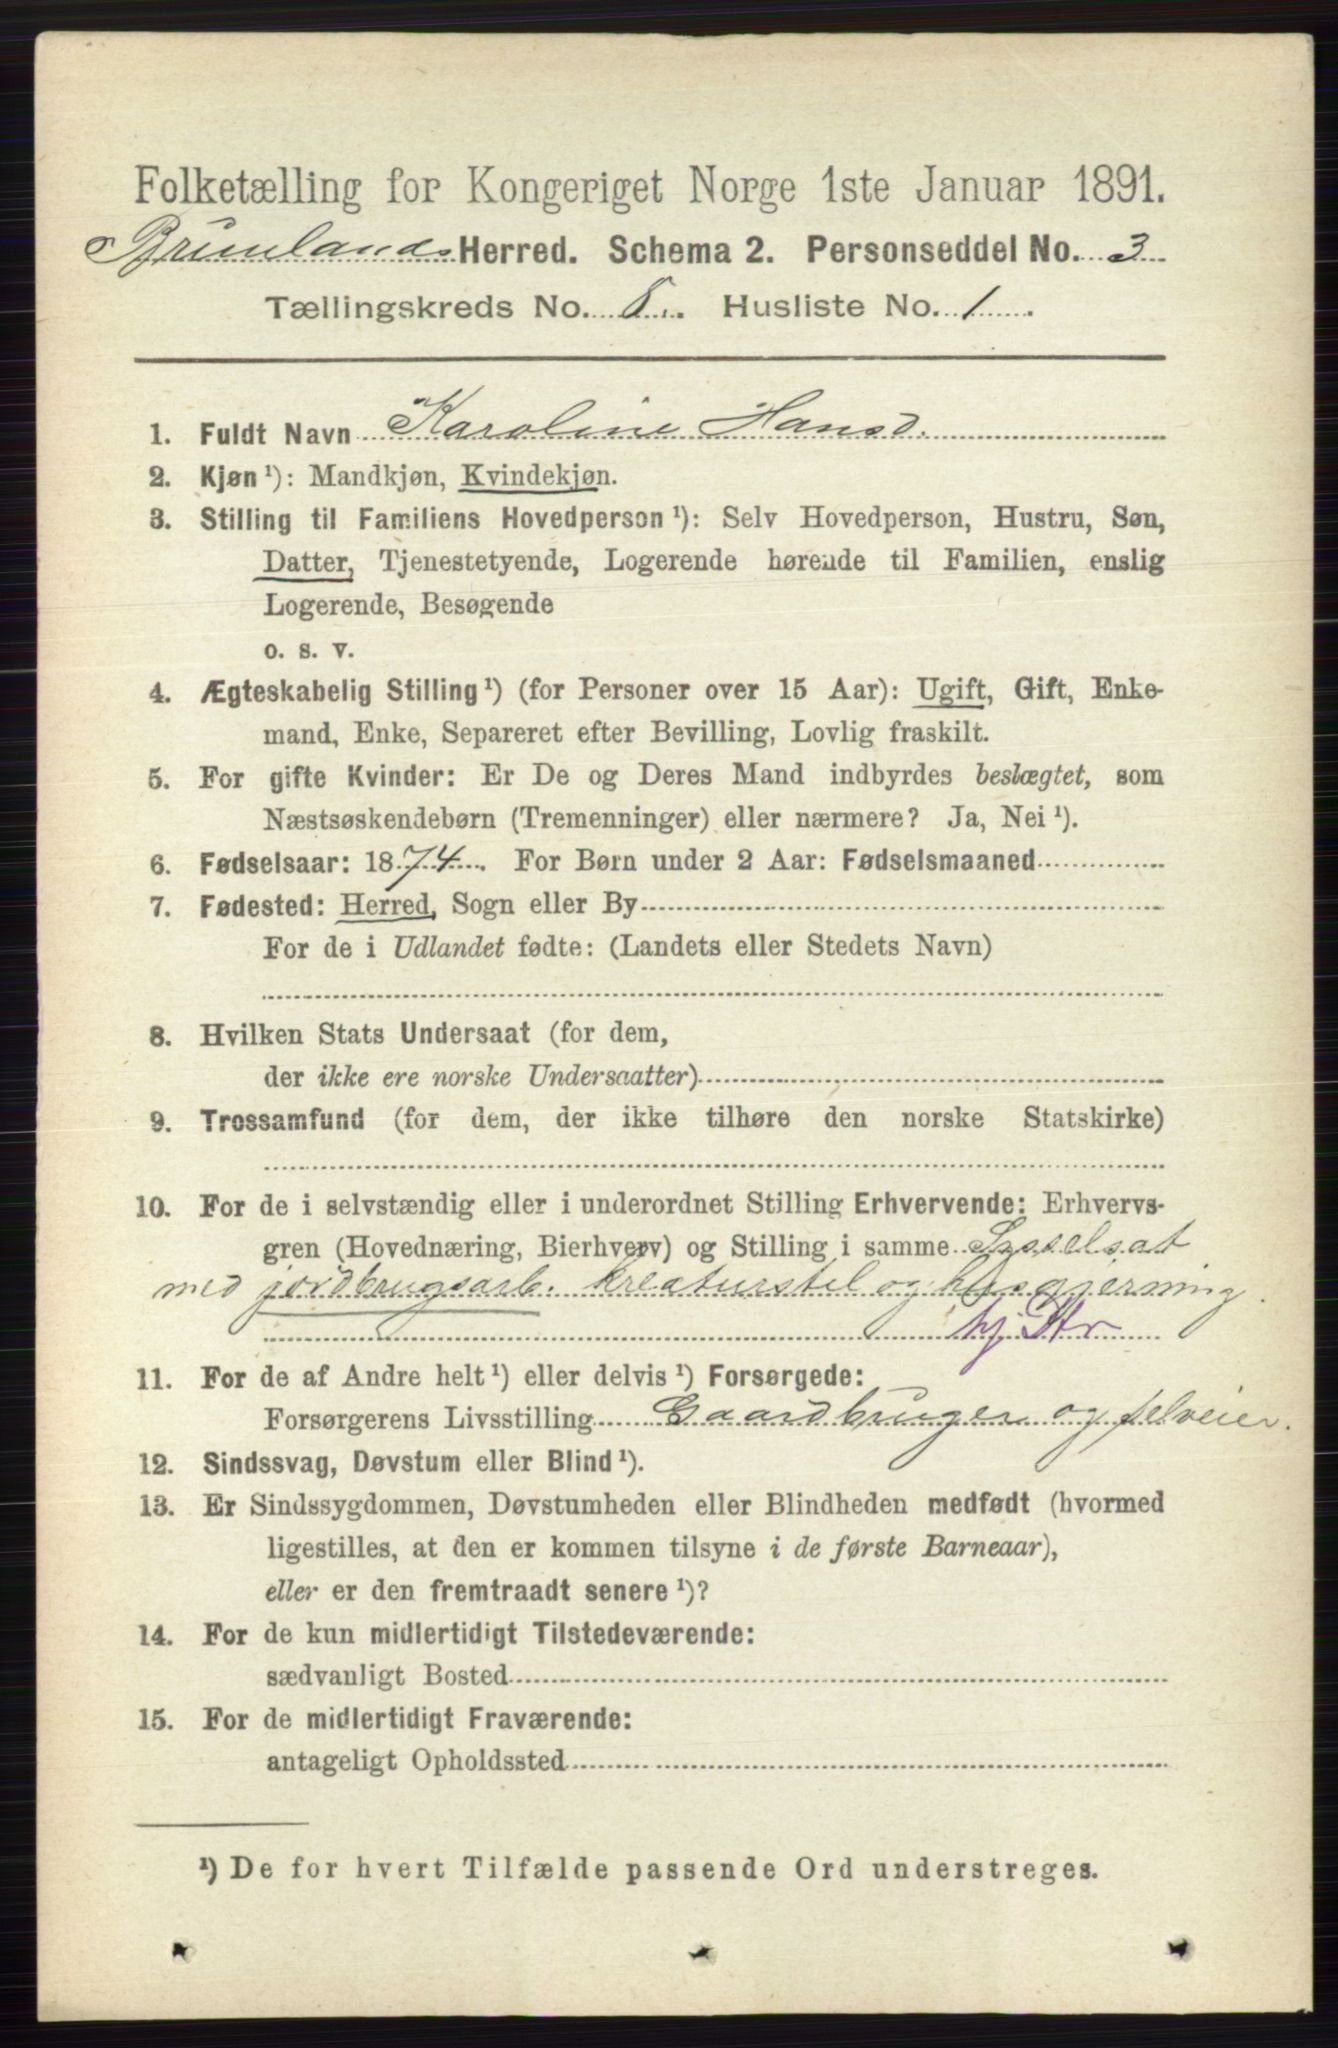 Folketælling for Kongeriget Norge 1ste Januar 1891.
Brunlands Herred. Schema 2. Personseddel No. 3
Tællingskreds No. 8. Husliste No. 1.
1. Fuldt Navn Karoline Hansd.
2. Kjøn ¹): Mandkjøn, Kvindekjøn.
3. Stilling til Familiens Hovedperson ¹): Selv Hovedperson, Hustru, Søn,
Datter, Tjenestetyende, Logerende hørende til Familien, enslig
Logerende, Besøgende
o. s. v.
4. Ægteskabelig Stilling ¹) (for Personer over 15 Aar): Ugift, Gift, Enke-
mand, Enke, Separeret efter Bevilling, Lovlig fraskilt.
5. For gifte Kvinder: Er De og Deres Mand indbyrdes beslægtet, som
Næstsøskendebørn (Tremenninger) eller nærmere? Ja, Nei ¹).
6. Fødselsaar: 1874. For Børn under 2 Aar: Fødselsmaaned
7. Fødested: Herred, Sogn eller By
For de i Udlandet fødte: (Landets eller Stedets Navn)
8. Hvilken Stats Undersaat (for dem,
der ikke ere norske Undersaatter)
9. Trossamfund (for dem, der ikke tilhøre den norske Statskirke)
10. For de i selvstændig eller i underordnet Stilling Erhvervende: Erhvervs-
gren (Hovednæring, Bierhverv) og Stilling i samme Sysselsat
med jordbrugsarb. kreaturstel og husgjerning.
hj. Str
11. For de af Andre helt ¹) eller delvis ¹) Forsørgede:
Forsørgerens Livsstilling Gaardbruger og selveier.
12. Sindssvag, Døvstum eller Blind ¹).
13. Er Sindssygdommen, Døvstumheden eller Blindheden medfødt (hvormed
ligestilles, at den er kommen tilsyne i de første Barneaar),
eller er den fremtraadt senere ¹)?
14. For de kun midlertidigt Tilstedeværende:
sædvanligt Bosted
15. For de midlertidigt Fraværende:
antageligt Opholdssted
¹) De for hvert Tilfælde passende Ord understreges.